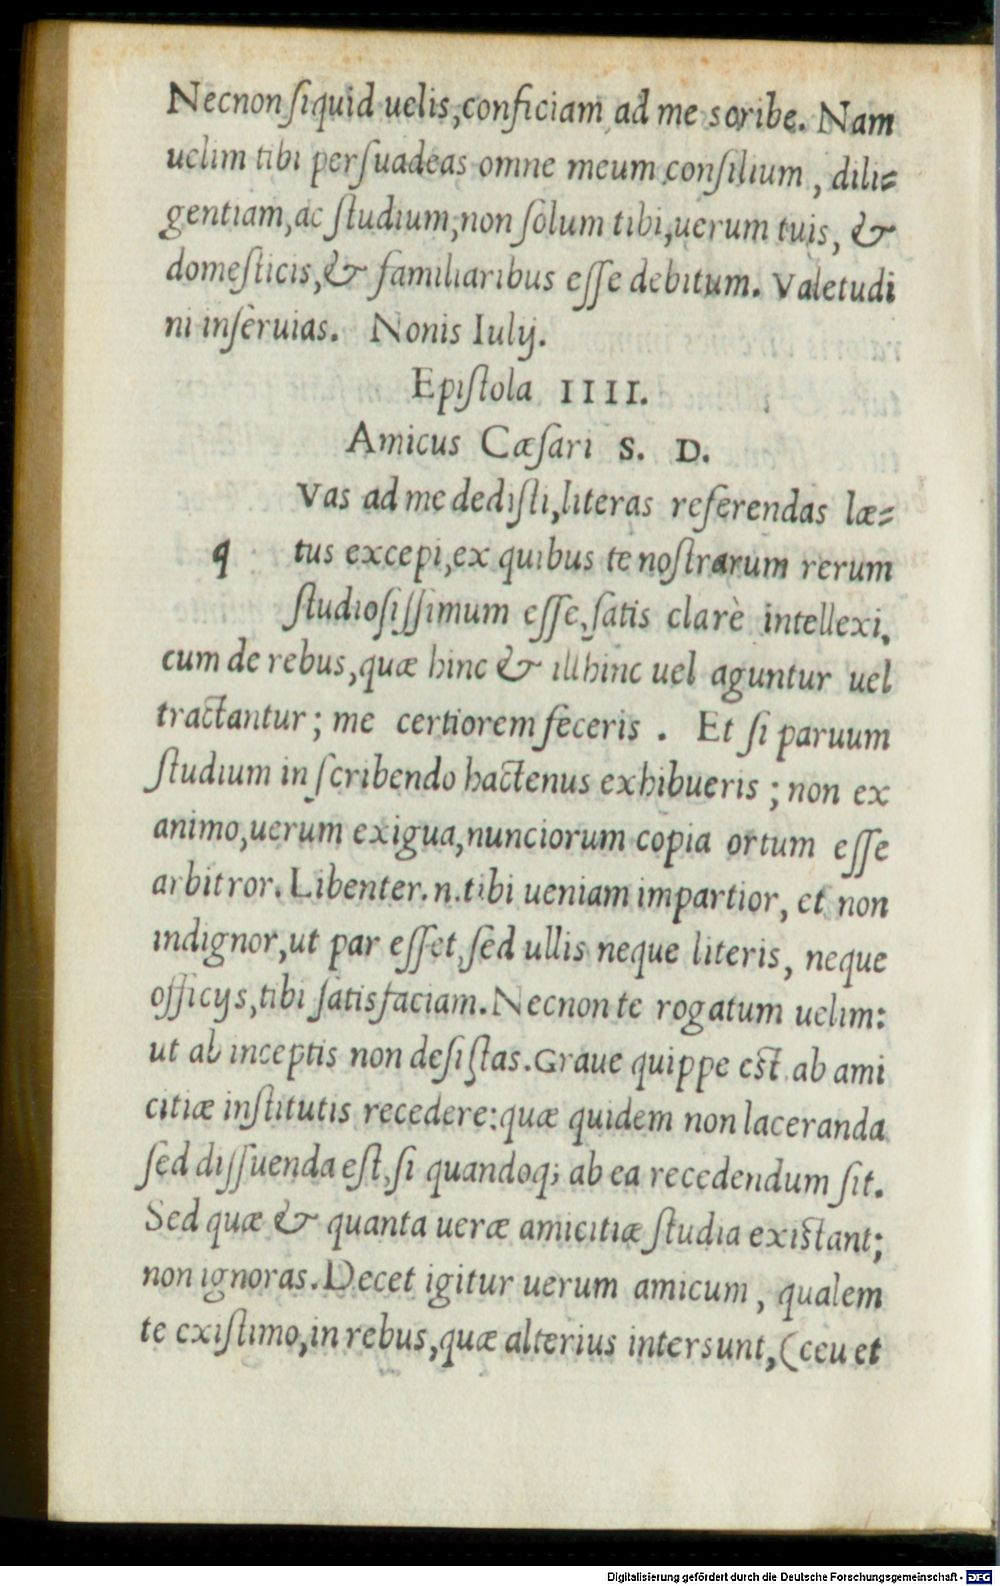 Necnon ſiquid uelis,conficiam ad me scribe. Nam
uelim tibi perſuadeas omne meum conſilium , dili⸗
gentiam,ac ſtudium,non ſolum tibi,uerum tuis, &
domeſticis,& familiaribus eſſe debitum. Valetudi
ni inſeruias. Nonis Iulij.
Epiſtola IIII.
Amicus Cæſari S. D.
Vas ad me dediſti,literas referendas læ⸗
q tus excepi,ex quibus te noſtrarum rerum
ſtudioſiſſimum eſſe,ſatis clarè intellexi,
cum de rebus,quæ hinc & illhinc uel aguntur uel
tractantur ; me certiorem feceris . Et ſi paruum
ſtudium in ſcribendo hactenus exhibueris ; non ex
animo,uerum exigua,nunciorum copia ortum eſſe
arbitror. Libenter.n.tibi ueniam impartior, et non
indignor,ut par eſſet,ſed ullis neque literis, neque
officijs,tibi ſatisfaciam. Necnon te rogatum uelim:
ut ab inceptis non deſiſtas. Graue quippe eſt ab ami
citiæ inſtitutis recedere:quæ quidem non laceranda
ſed diſſuenda eſt,ſi quandoq; ab ea recedendum ſit.
Sed quæ & quanta ueræ amicitiæ ſtudia exiſtant;
non ignoras. Decet igitur uerum amicum , qualem
te exiſtimo,in rebus,quæ alterius intersunt,(ceu et
Digitalisierung gefördert durch die Deutsche Forschungsgemeinschaft - DFG